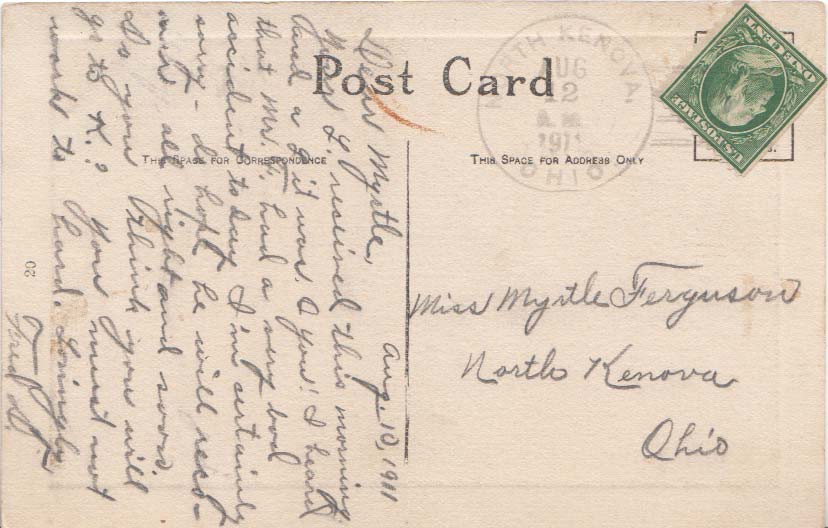 Post Card
THIS SPACE FOR CORRESPONDENCE
THIS SPACE FOR ADDRESS ONLY
NORTH KENOVA
AUG
12
A.M.
1911
OHIO
U.S. POSTAGE
ONE CENT
Aug. 10, 1911
Dear Myrtle,
received this morning.
And a it was. you! I heard
that Mr. F. had a very bad
accident today. I'm certainly
sorry - do hope he will reco-
all right and soon.
Do you think you will
go to K.? You must not
work to hard. Lovingly
Fred
20
Miss Myrtle Ferguson
North Kenova
Ohio